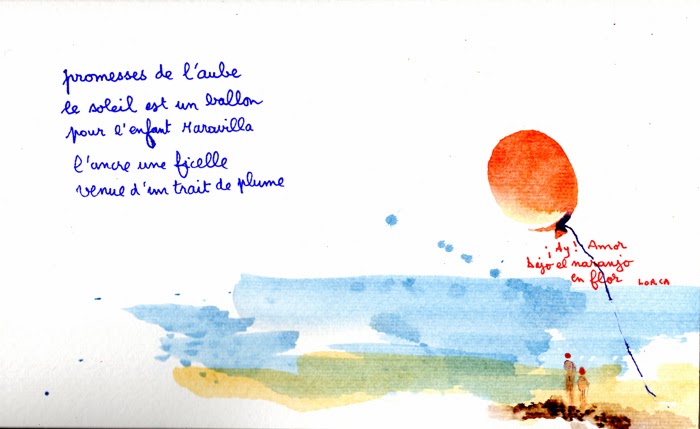 promesses de l'aube
le soleil est un ballon
pour l'enfant Maravilla
l'ancre une ficelle
venue d'un trait de plume
¡Ay! Amor
bajo el naranjo
en flor
LORCA